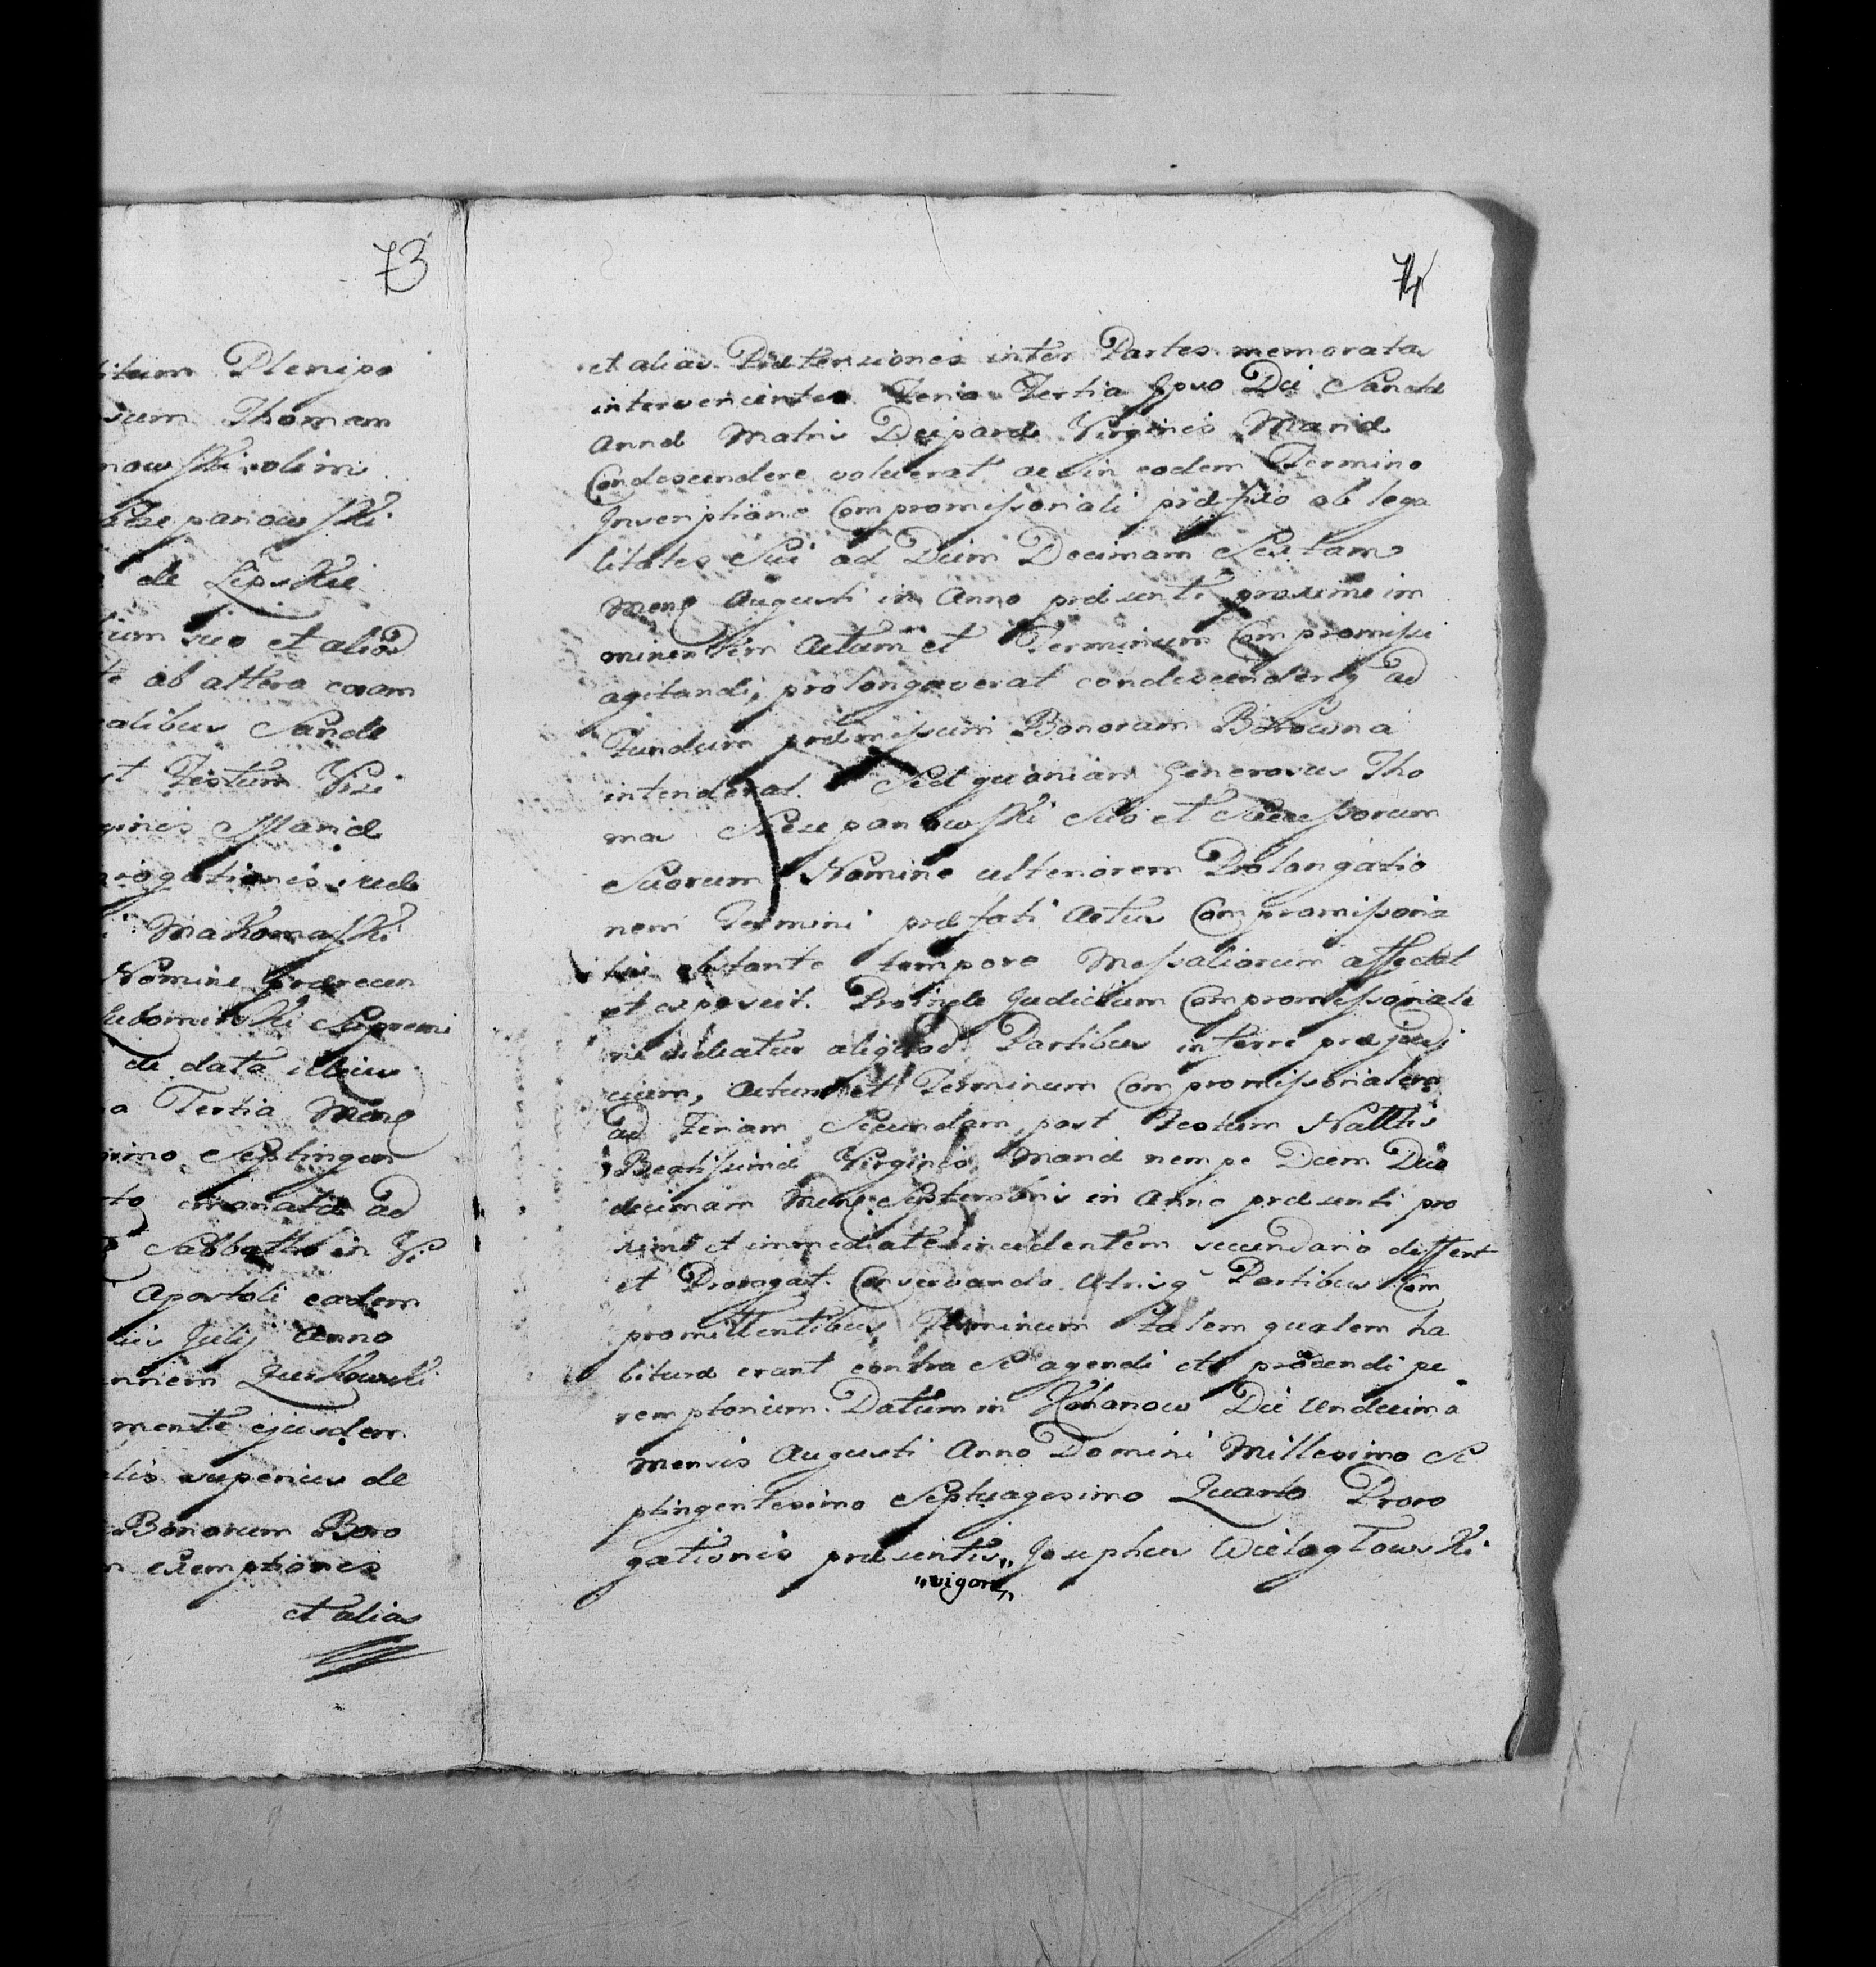 73
itum Plenipo
sum Thomam
nowski olim
Szczepanowski
de Lipskie
suo et aliod
te ab altera coram
calibus Sande
et Festum Visi
ginis Mariæ
rogationis
Makomaski
Nomine
Lubomirski Supremi
de data illius
a Tertia Mens
simo Septingen
to emanatæ ad
Sabbatho in Vi
Apostoli eadem
Julij Anno
Zurkowski
mente ejusdem
lis superius de
Bonorum Boro
exemptiones
et alias
74
et alias Prætensiones inter Partes memoratas
intervenientes Feria Tertia Ipso Die Sanctæ
Annæ Matris Deiparæ Virginis Mariæ
Condescendere voluerat ac in eodem Termino
Inscriptione Compromissoriali præfixo ob lega
litates Sui ad Diem Decimam Sextam
Mens Augusti in Anno præsenti proxime im
minentem Actum et Terminum Compromissi
agitandi, prolongaverat condescendereq ad
Fundum præmissum Bonorum Borowna
intenderat. Sed quoniam Generosus Tho
mas Szczepanowski Suo et Successorum
Suorum Nomine ulteriorem Prolongatio
nem Termini præfati Actus Compromissoria
lis obstante tempore Messaliorum affectat
et exposuit. Proinde Judicium Compromissoriale
ne videatur aliquod Partibus inferre præjudi
cium, Actum et Terminum Compromissorialem
ad Feriam Secundam post Festum Nattis
Beatissimæ Virginis Mariæ nempe Diem Duo
decimam Mens Septembris in Anno præsenti pro
xime et immediate incidentem secundario differt
et Prorogat. Conservando utrisq Partibus Com
promittentibus Terminum talem qualem ha
bituræ erant contra se agendi et procendi pe
remptorium. Datum in Kohanow Die Undecima
Mensis Augusti Anno Domini Millesimo Se
ptingentesimo Septuagesimo Quarto Proro
gationis præsentis,, Josephus Wielogłowski
,,vigore,,